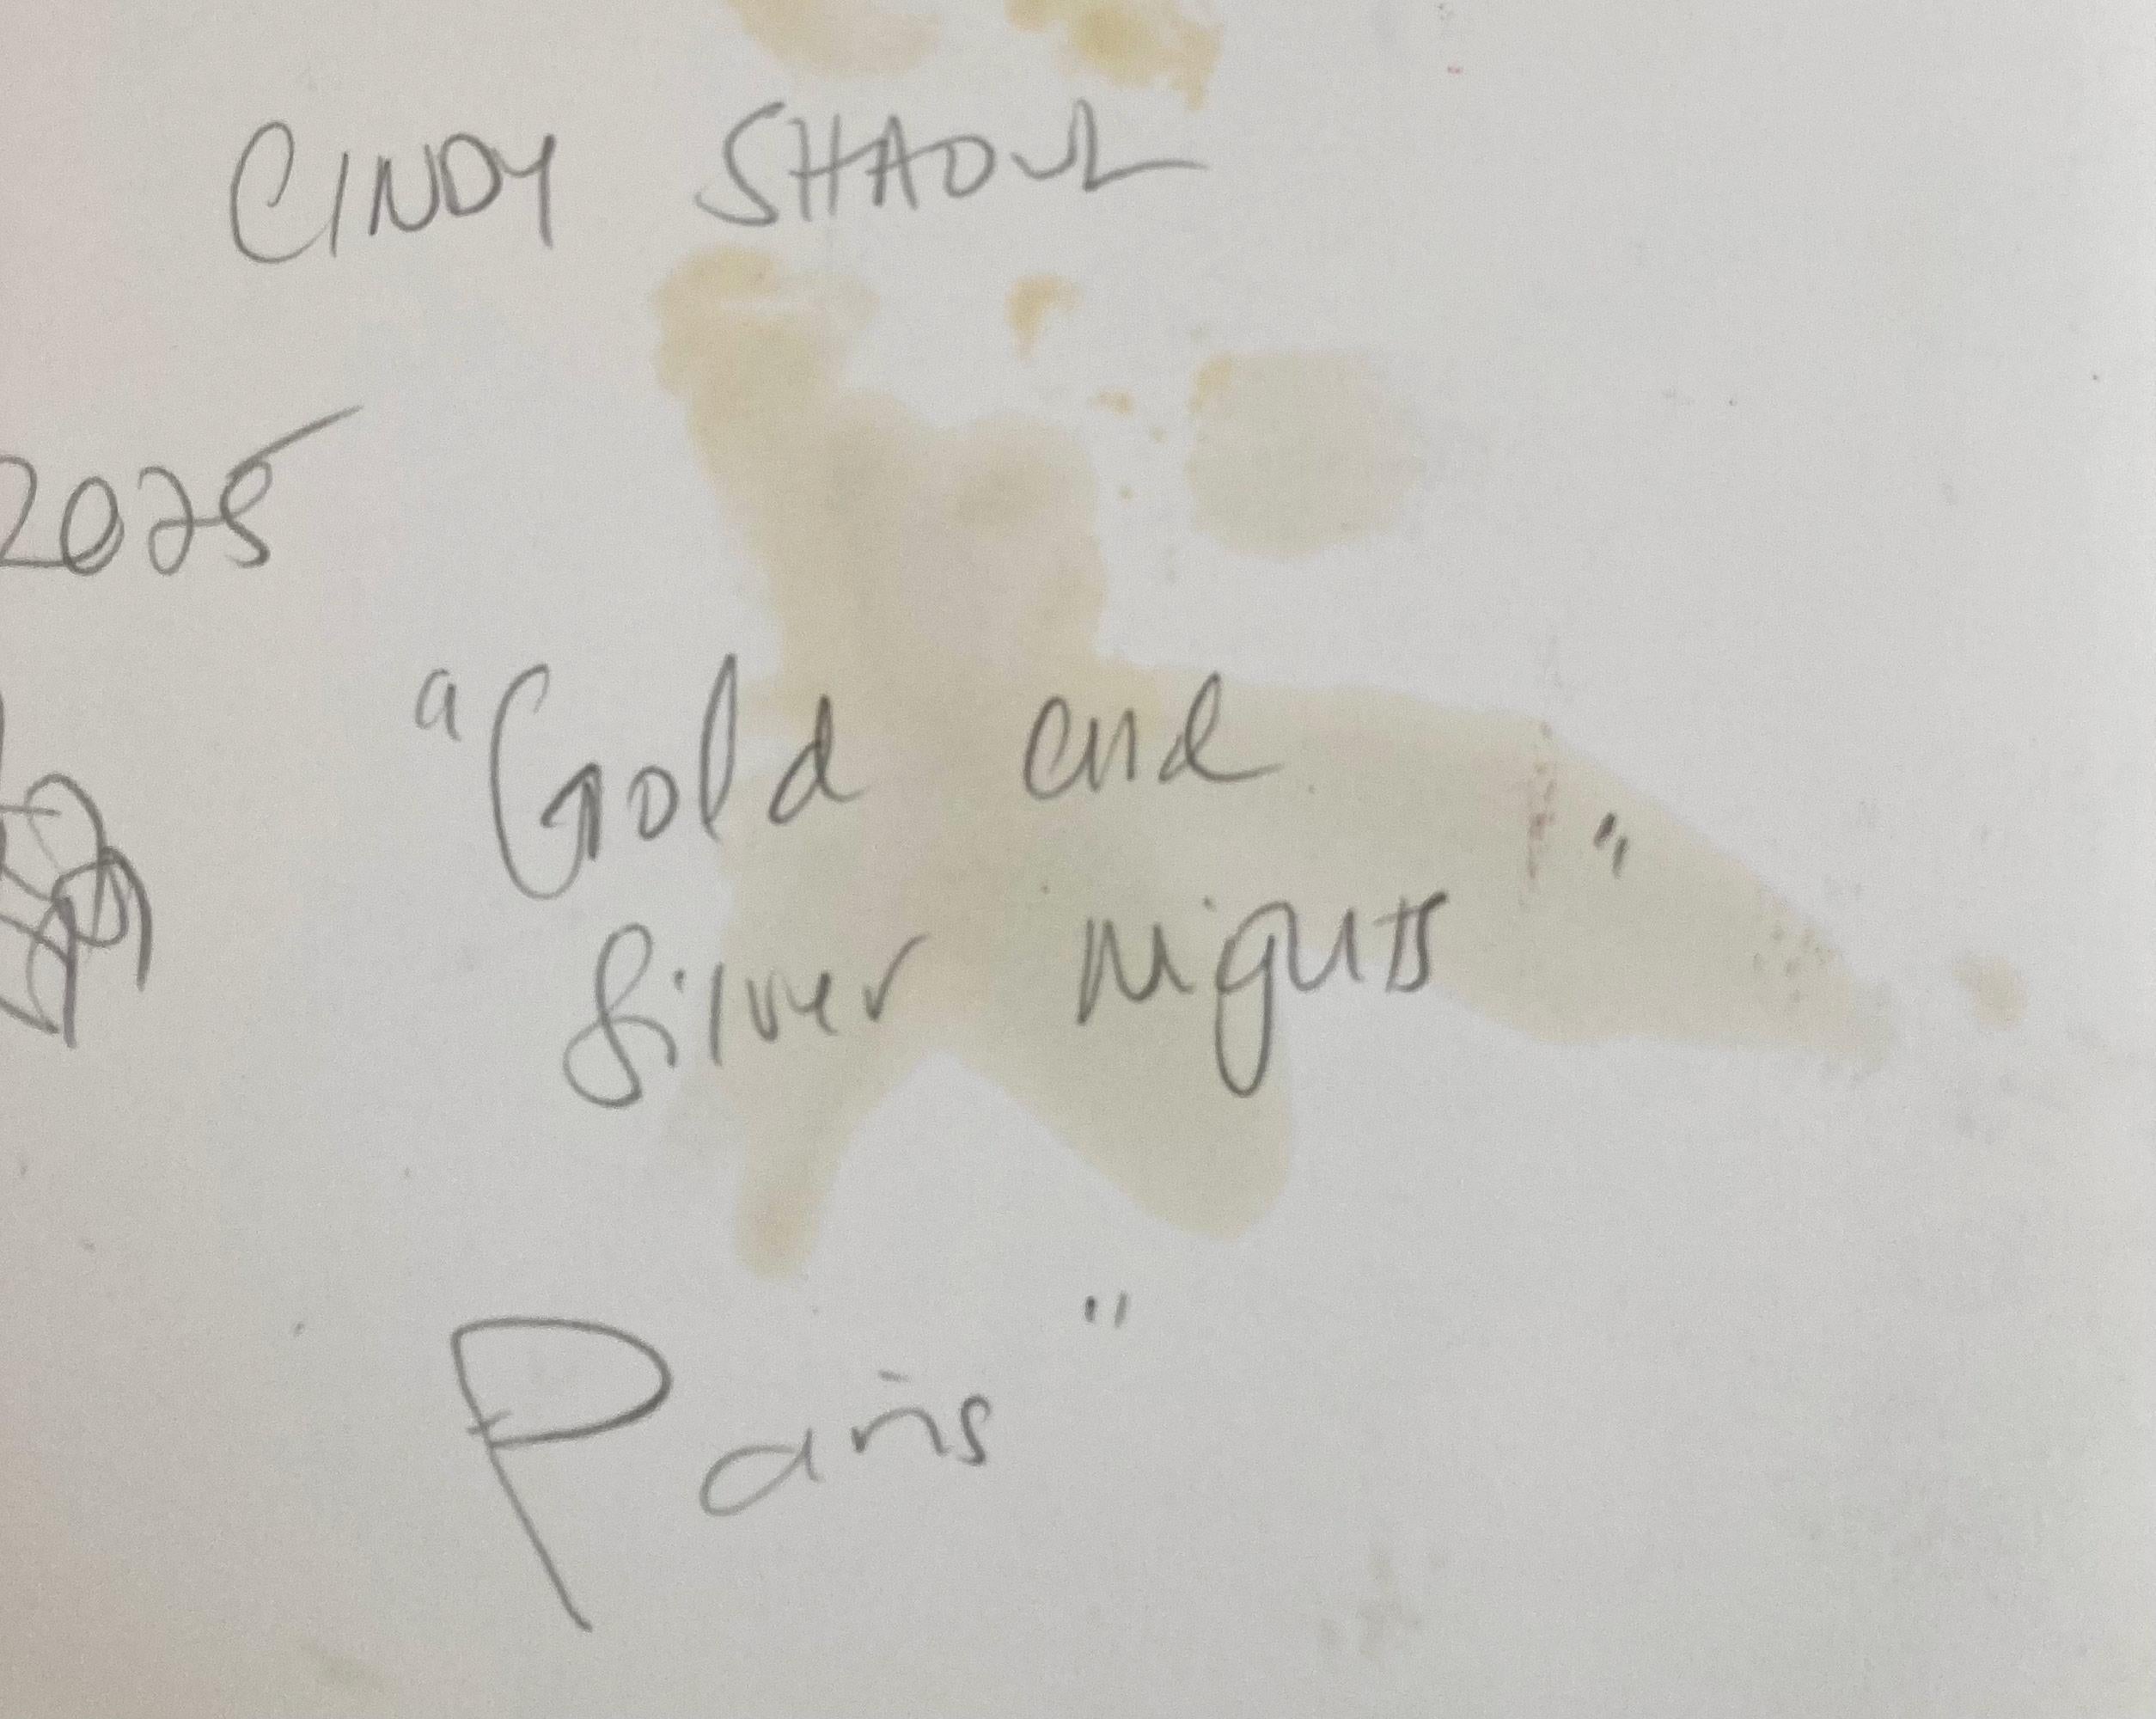 CINDY SHAOUL
2025
"Gold and
Silver nights"
Paris"